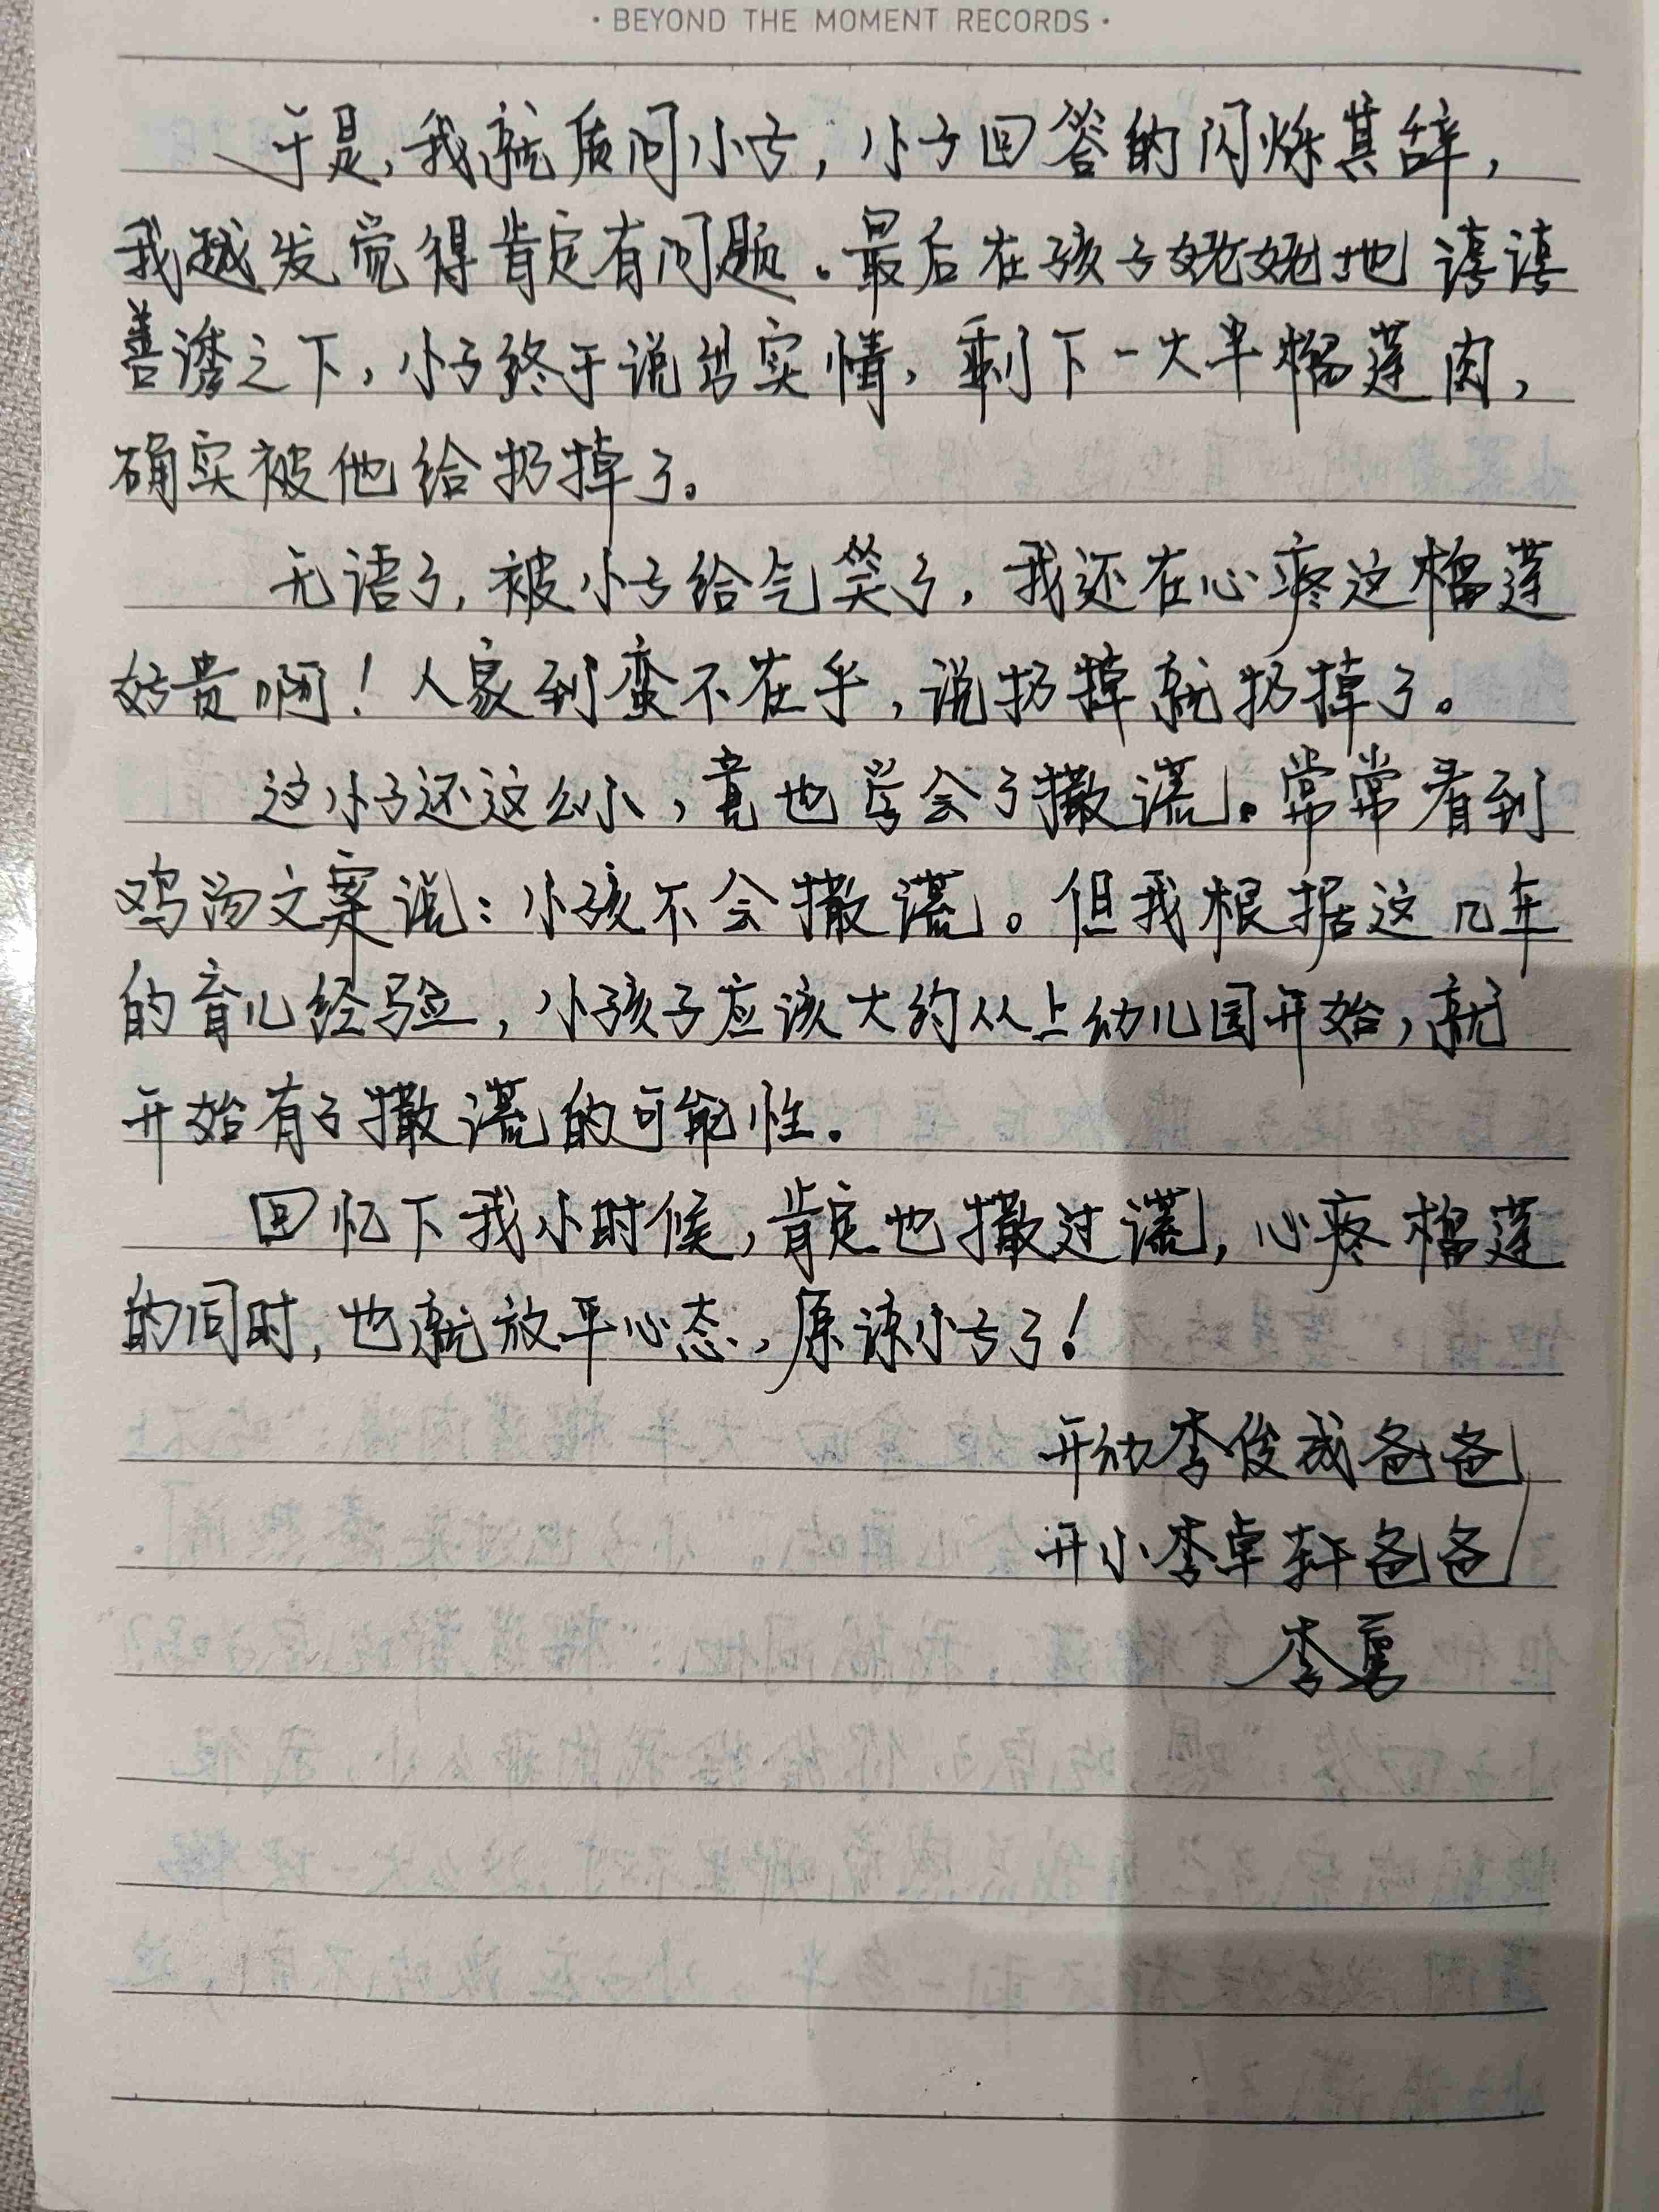 · BEYOND THE MOMENT RECORDS ·
于是,我就质问小子,小子回答的闪烁其辞,
我越发觉得肯定有问题。最后在孩子姥姥地谆谆
善诱之下,小子终于说出实情,剩下一大半榴莲肉,
确实被他给扔掉了。
无语了,被小子给气笑了,我还在心疼这榴莲
好贵啊!人家到蛮不在乎,说扔掉就扔掉了。
这小子还这么小,竟也学会了撒谎。常常看到
鸡汤文案说:小孩不会撒谎。但我根据这几年
的育儿经验,小孩子应该大约从上幼儿园开始,就
开始有了撒谎的可能性。
回忆下我小时候,肯定也撒过谎,心疼榴莲
的同时,也就放平心态,原谅小子了!
开幼李俊成爸爸
开小李卓轩爸爸
李勇